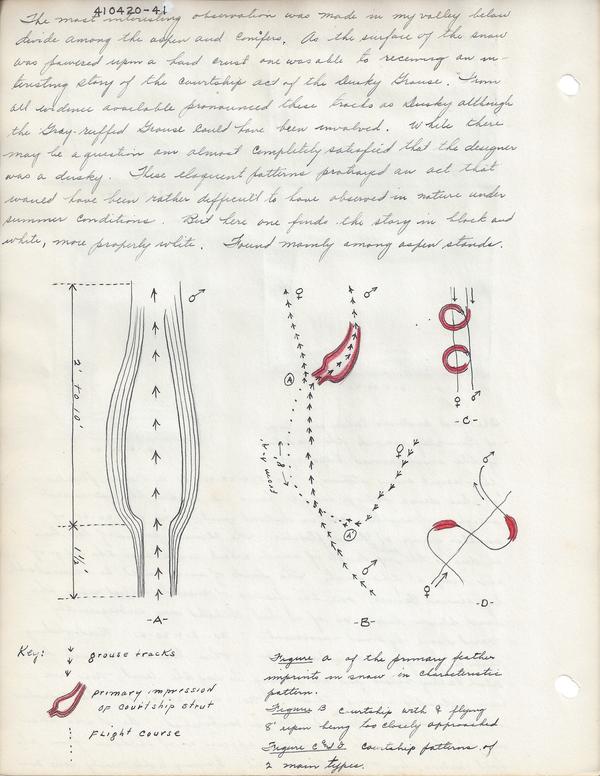 410420-41
The most interesting observation was made in my valley below
divide among the aspen and conifers. As the surface of the snow
was powdered upon a hard crust one was able to recieving an in-
teristing story of the courtship act of the Dusky Grouse. From
all evidence available pronounced these tracks as Dusky although
the Gray-ruffed Grouse could have been involved. While there
may be a question am almost completely satisfied that the designer
was a dusky. These eloquent patterns protrayed an act that
would have been rather difficult to have observed in nature under
summer conditions. But here one finds the story in black and
white, more properly white. Found mainly among aspen stands.
2' to 10'
1½'
♂
-A-
♀
♂
A
8'
♀
A'
♂
-B-
♀ ♂
-C-
♂
♀
-D-
Key:
grouse tracks
primary impression
of courtship strut
Flight course
Figure A of the primary feather
imprints in snow in charcteristic
pattern.
Figure B courtship with ♀ flying
8' upon being too closely approached
Figure C & D courtship patterns of
2 main types.